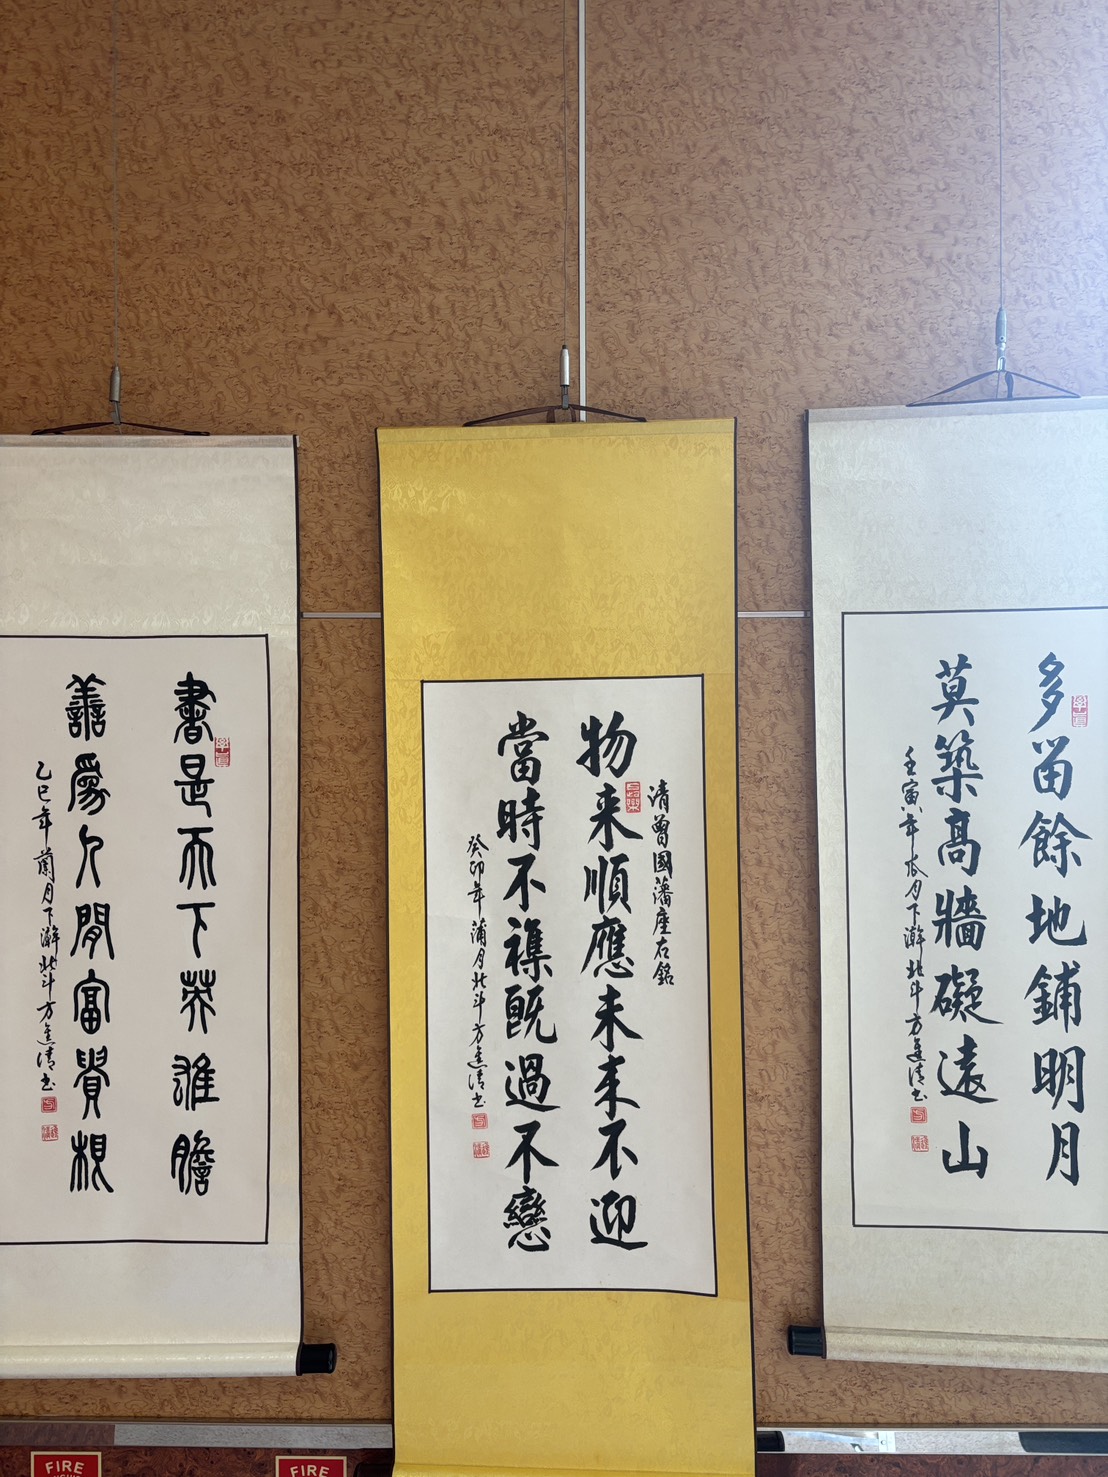 多留餘地鋪明月
莫築高牆礙遠山
壬寅年瓜月下澣北斗方進清书
清曾國藩座右銘
物来順應未来不迎
當時不襍既過不戀
癸卯年蒲月北斗方進清书
書是天下英雄膽
善爲人間富貴根
乙巳年蘭月下澣北斗方進清书
FIRE
FIRE